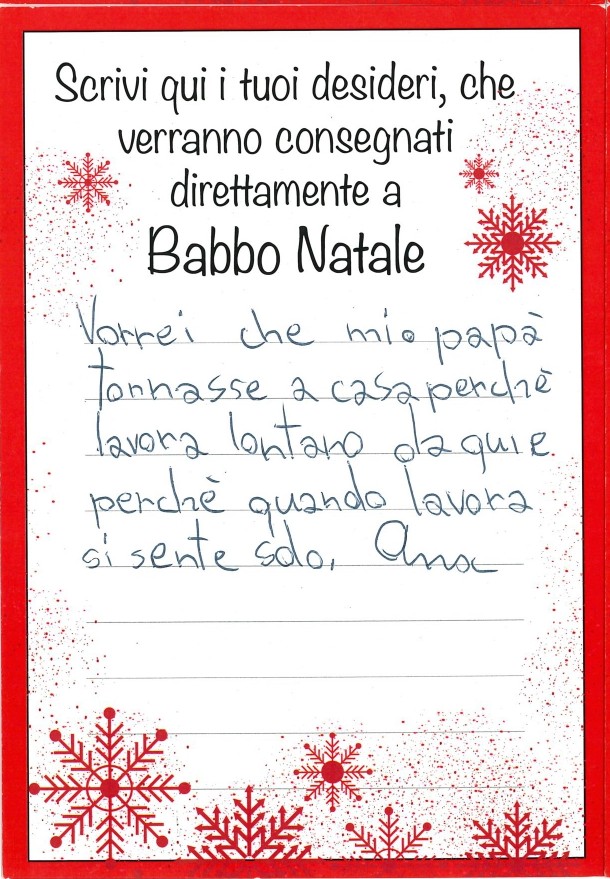 Scrivi qui i tuoi desideri, che
verranno consegnati
direttamente a
Babbo Natale
Vorrei che mio papà
tornasse a casa perchè
lavora lontano da qui e
perchè quando lavora
si sente solo, Anna